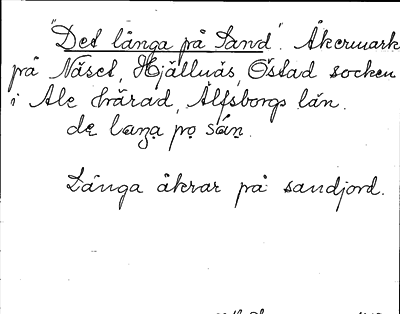 "Det långa på Sand". Åkermark
på Näset, Hjällnäs, Östad socken
i Ale härad, Älfsborgs län.
de laŋa po san.
Långa åkrar på sandjord.